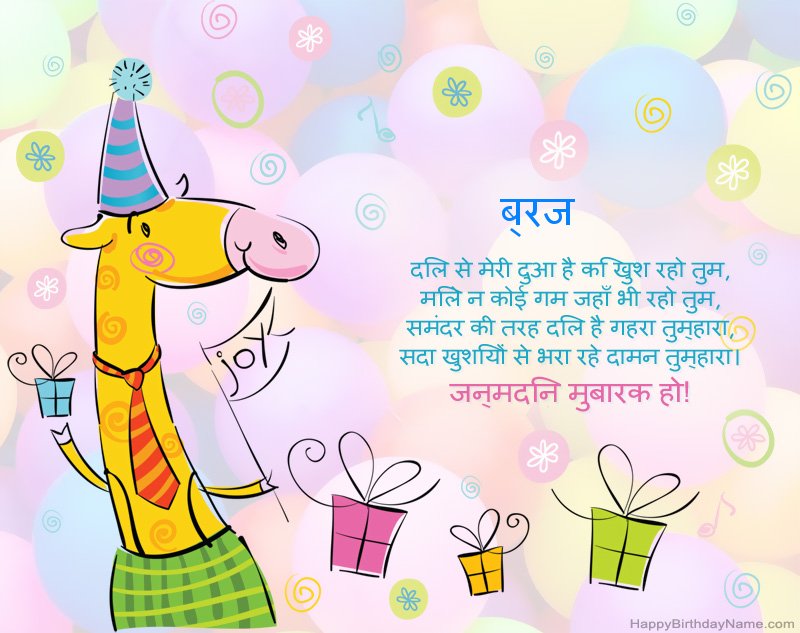 ब्रज
दिल से मेरी दुआ है कि खुश रहो तुम,
मिले न कोई गम जहाँ भी रहो तुम,
समंदर की तरह दिल है गहरा तुम्हारा,
सदा खुशियों से भरा रहे दामन तुम्हारा।
जन्मदिन मुबारक हो!
joy
HappyBirthdayName.com